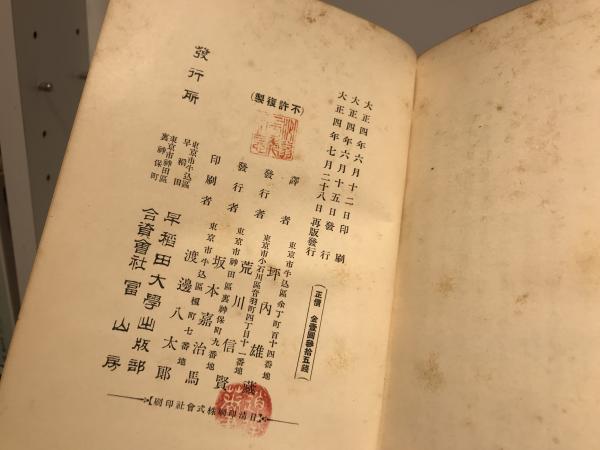 大正四年六月十二日印刷
大正四年六月十五日發行
大正四年七月二十八日再版發行
正價 金壹圓參拾五錢
(不許復製)
譯者
東京市牛込區余丁町百十四番地
坪內雄藏
發行者
東京市小石川區音羽町四丁目十一番地
荒川信賢
發行者
東京市神田區裏神保町九番地
坂本嘉治馬
印刷者
東京市牛込區榎町七番地
渡邊八太郎
發行所
東京市牛込區早稻田
早稻田大學出版部
東京市神田區裏神保町
合資會社冨山房
日淸印刷株式會社印刷